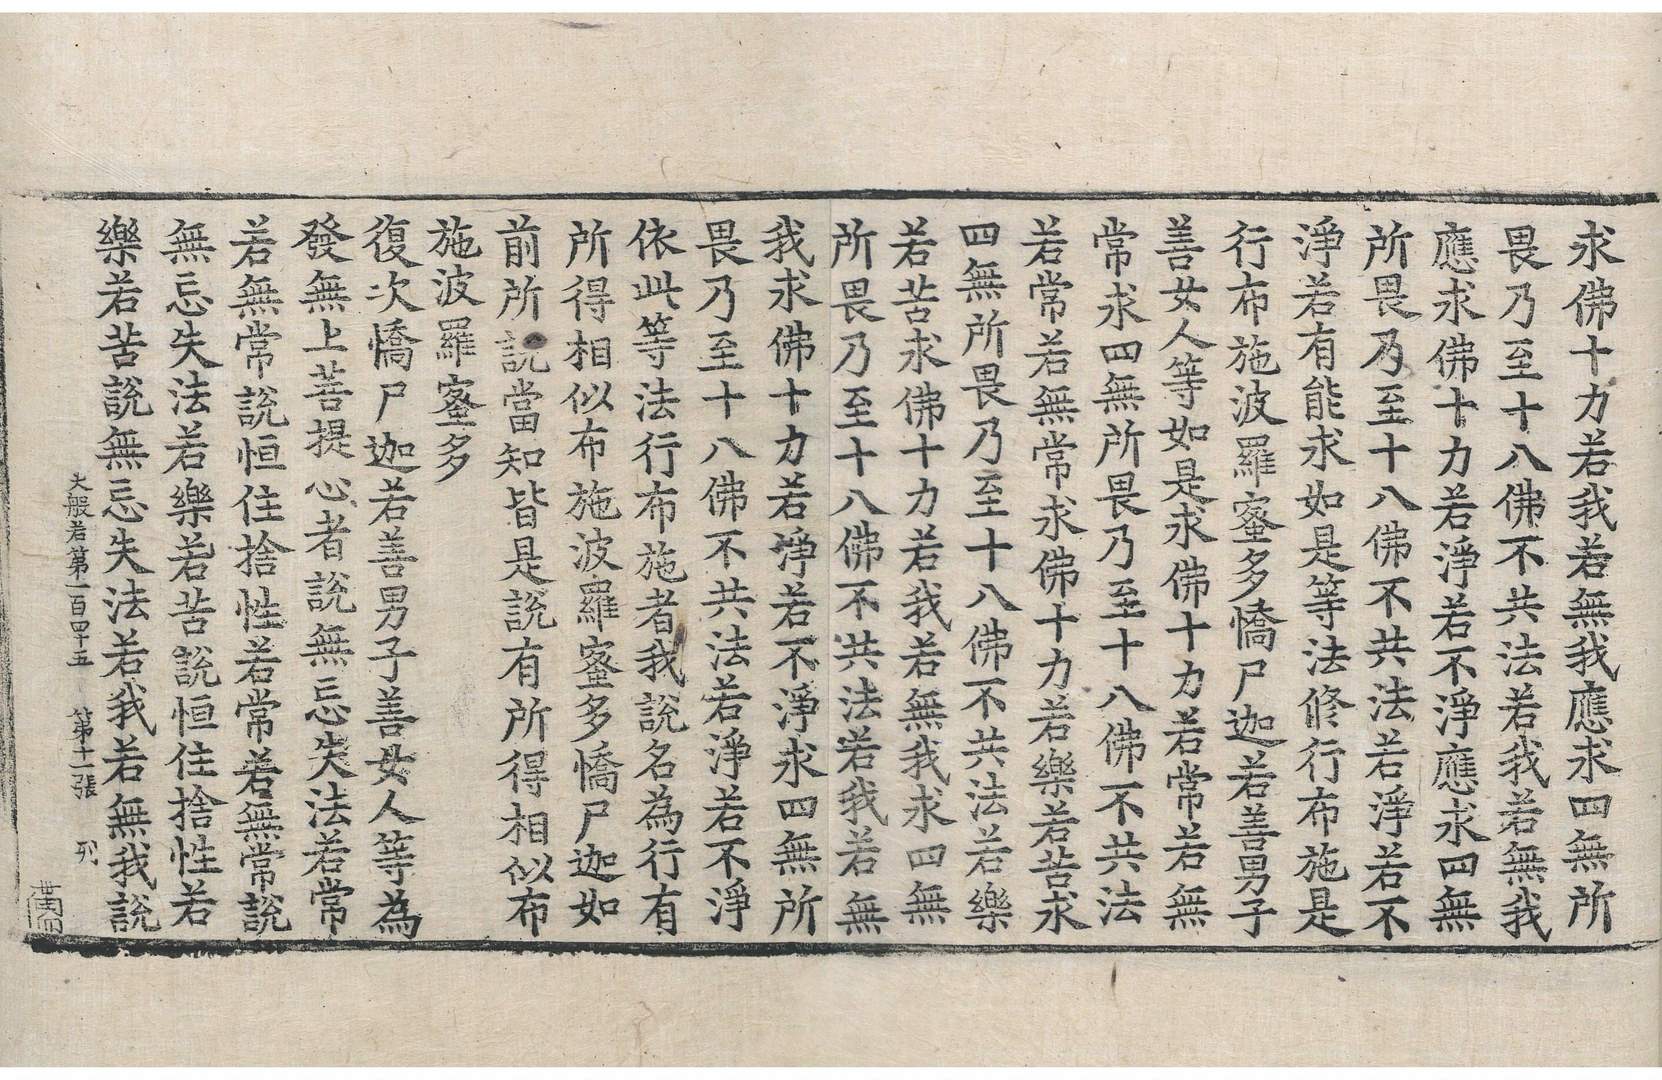 求佛十力若我若無我應求四無所
畏乃至十八佛不共法若我若無我
應求佛十力若淨若不淨應求四無
所畏乃至十八佛不共法若淨若不
淨若有能求如是等法修行布施是
行布施波羅蜜多憍尸迦若善男子
善女人等如是求佛十力若常若無
常求四無所畏乃至十八佛不共法
若常若無常求佛十力若樂若苦求
四無所畏乃至十八佛不共法若樂
若苦求佛十力若我若無我求四無
所畏乃至十八佛不共法若我若無
我求佛十力若淨若不淨求四無所
畏乃至十八佛不共法若淨若不淨
依此等法行布施者我說名為行有
所得相似布施波羅蜜多憍尸迦如
前所說當知皆是說有所得相似布
施波羅蜜多
復次憍尸迦若善男子善女人等為
發無上菩提心者說無忘失法若常
若無常說恒住捨性若常若無常說
無忘失法若樂若苦說恒住捨性若
樂若苦說無忘失法若我若無我說
大般若第一百四十五 第十一張 列